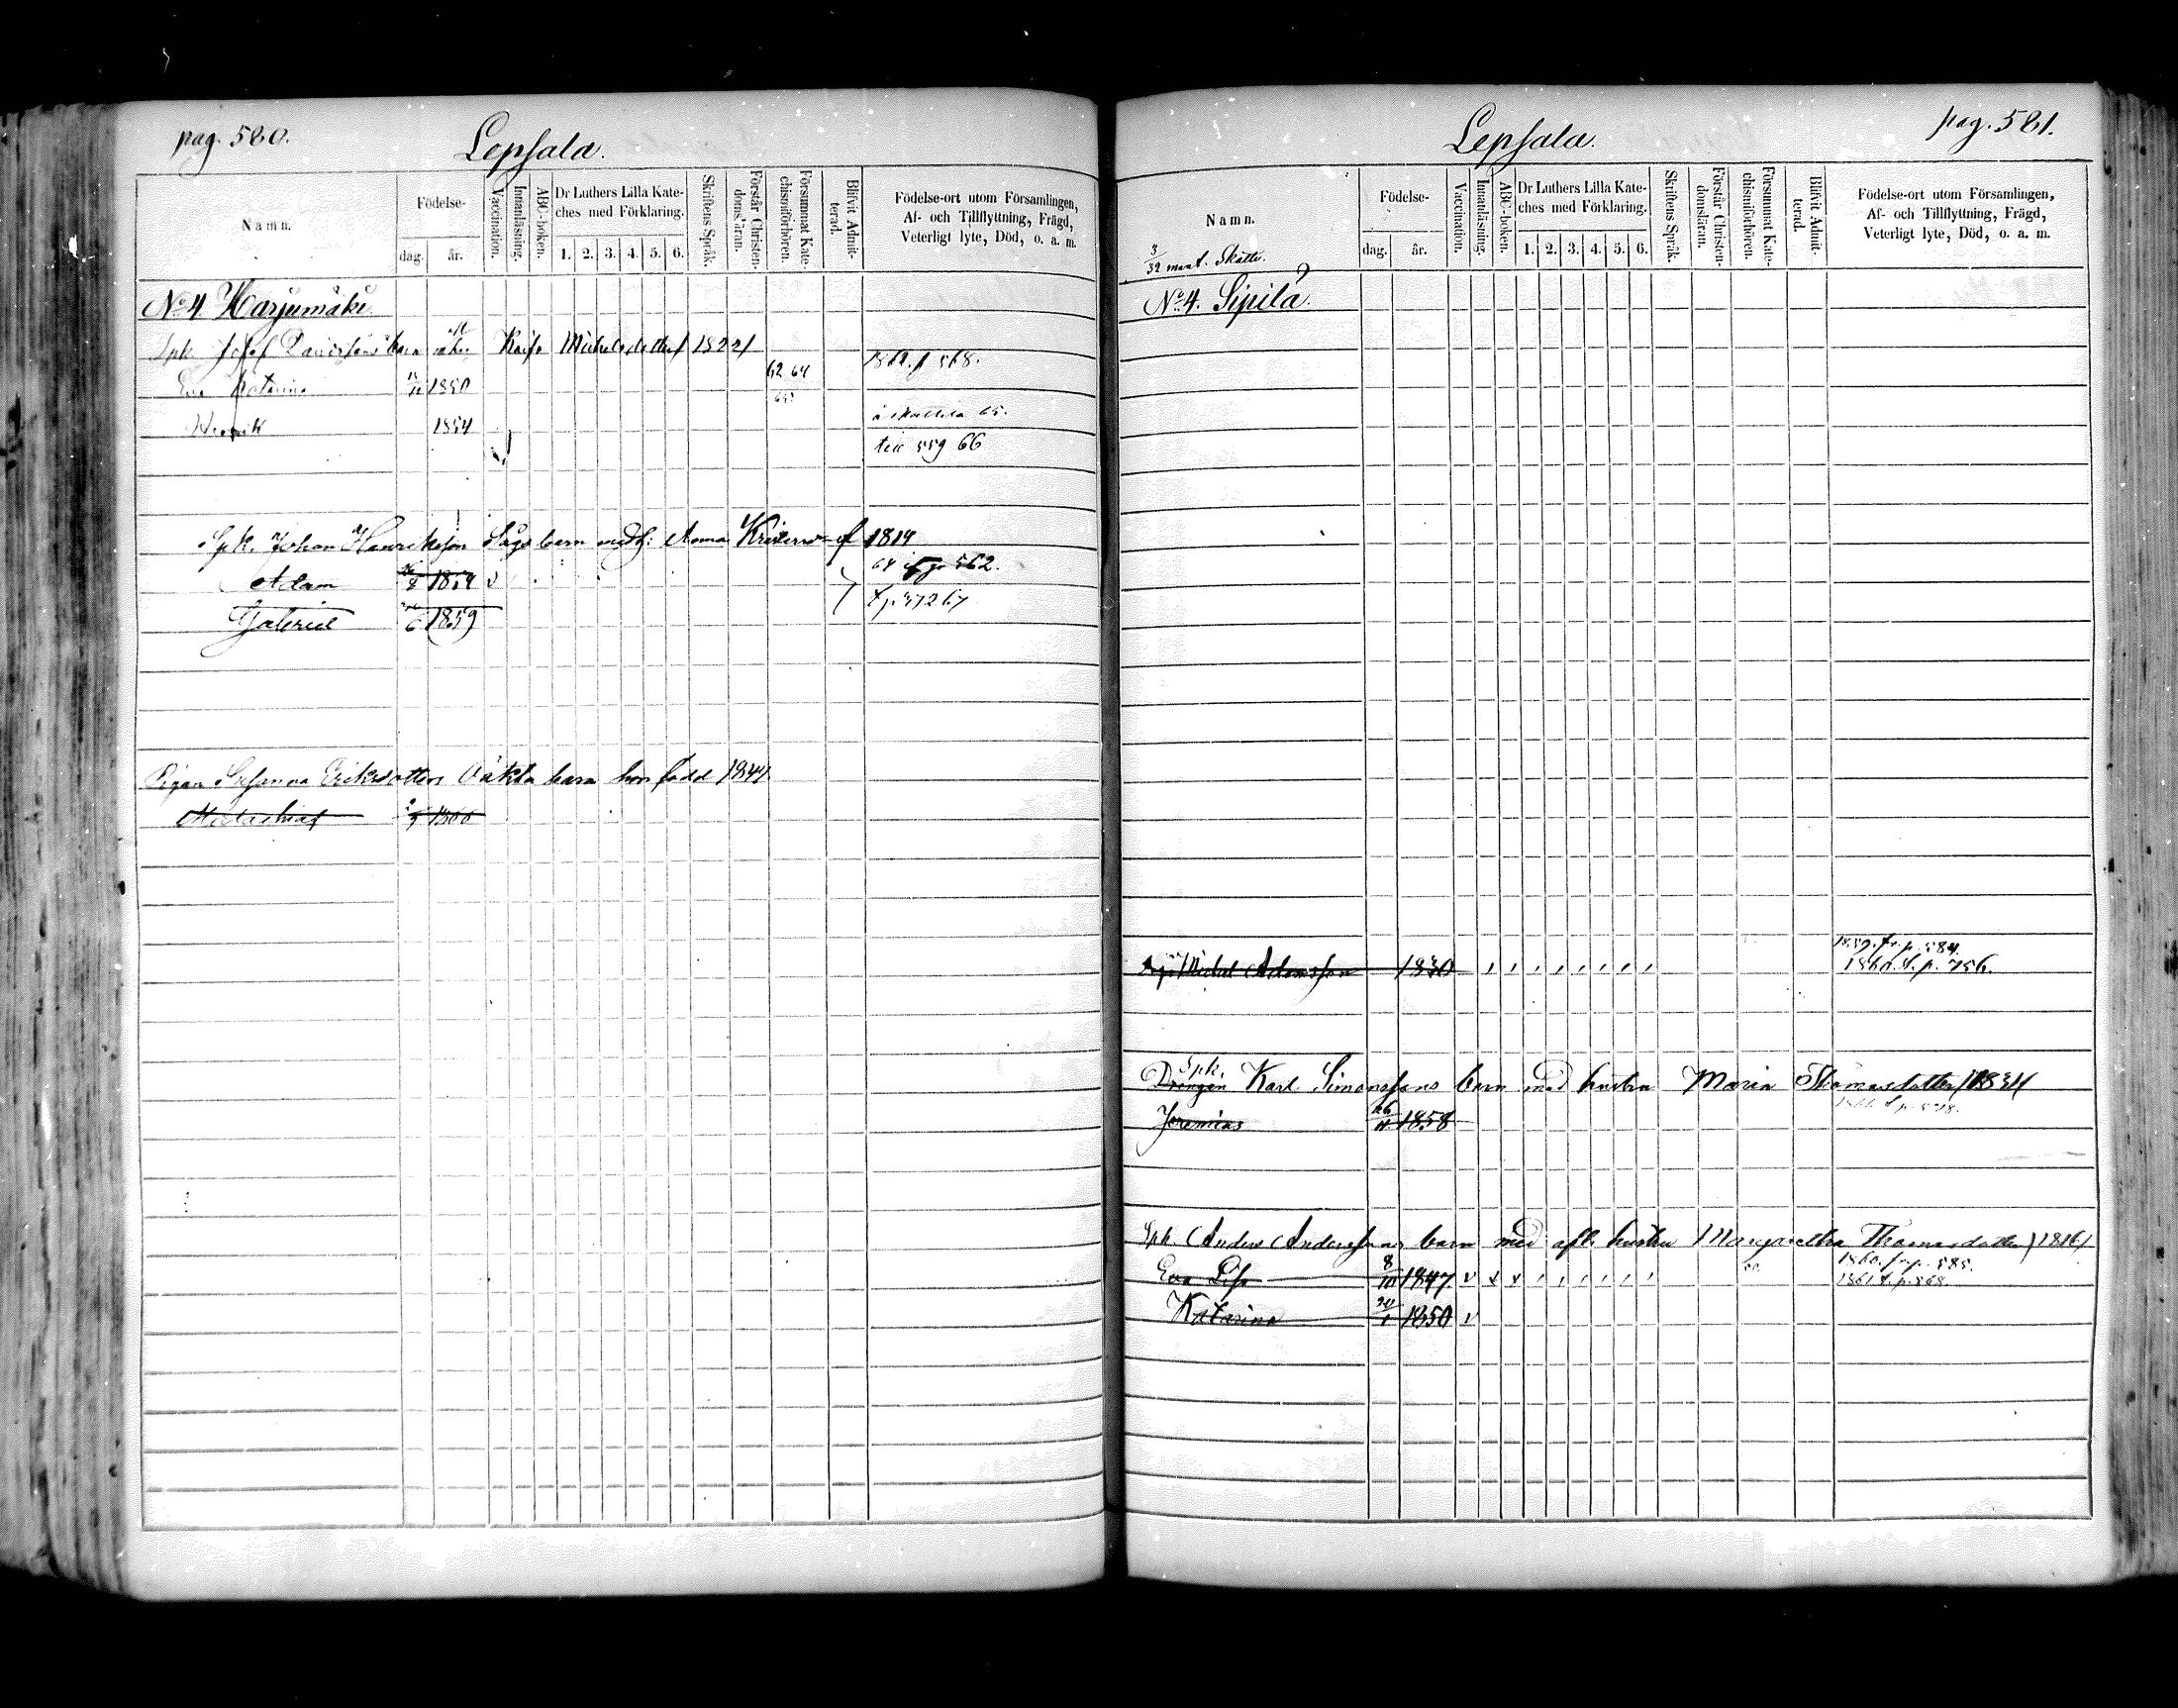 pag. 580.
Lepsala.
Namn.
Födelse-
dag.
år.
Vaccination.
Innanläsning.
ABC-boken.
Dr Luthers Lilla Kate-
ches med Förklaring.
1. 2. 3. 4. 5. 6.
Skriftens Språk.
Förstår Christen-
domsläran.
Försummat Kate-
chismiförhören.
Blifvit Admit-
terad.
Födelse-ort utom Församlingen,
Af- och Tillflyttning, Frägd,
Veterligt lyte, Död, o. a. m.
No 4 Harjumäki
Spk Josef Davidssons barn Kaisa Michelsdotter 1822
1862. p 568.
Eva Katarina 1850 62 64
65
Henrik 1854
65.
till 559 66
Spk. Johan Henriksson barn med h: Anna 1819
64 562.
Adam 1854 v
Gabriel 1859
Pigan Susanna Eriksdotters Oäkta barn hon född 1844
1866
pag. 581.
Lepsala.
Namn.
3/32 mant. Skatte.
Födelse-
dag.
år.
Vaccination.
Innanläsning.
ABC-boken.
Dr Luthers Lilla Kate-
ches med Förklaring.
1. 2. 3. 4. 5. 6.
Skriftens Språk.
Förstår Christen-
domsläran.
Försummat Kate-
chismiförhören.
Blifvit Admit-
terad.
Födelse-ort utom Församlingen,
Af- och Tillflyttning, Frägd,
Veterligt lyte, Död, o. a. m.
No 4. Sipilä.
1859. fr. p. 584.
Michel Adamsson 1830 1860. t. p. 756.
Spk.
Drengen Karl Simonssons barn med hustru Maria Thomasdotter 1834
Jeremias 26 1858
Spk Anders Anderssons barn med afl. hustru Margaretha Thomasdotter 1816
1860. fr. p. 585.
Eva Lisa 8/10 1847 v x x 60. 1861 t. p. 568.
Katarina 1850 v